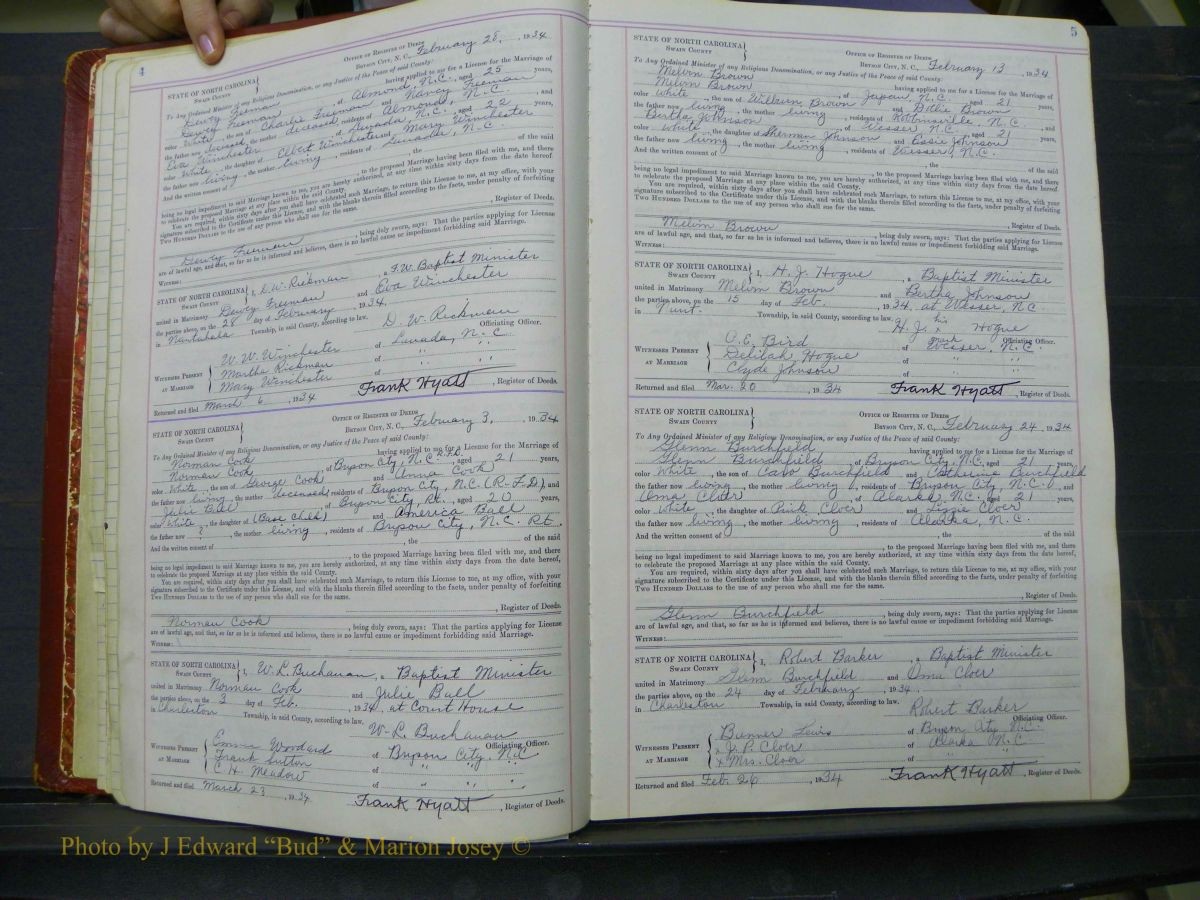 4
OFFICE OF REGISTER OF DEEDS
STATE OF NORTH CAROLINA
SWAIN COUNTY
BRYSON CITY, N. C., February 28, 1934
To Any Ordained Minister of any Religious Denomination, or any Justice of the Peace of said County:
Dewey Freeman having applied to me for a License for the Marriage of
Dewey Freeman, of Almond, N.C., aged 25 years,
color White, the son of Charlie Freeman and Nancy Freeman
the father now deceased, the mother deceased, residents of Almond, N.C., and
Eva Winchester, of Lauada, N.C., aged 22 years,
color White, the daughter of Elbert Winchester and Mary Winchester
the father now living, the mother living, residents of Lauada, N.C.
And the written consent of , the of the said
, to the proposed Marriage having been filed with me, and there
being no legal impediment to said Marriage known to me, you are hereby authorized, at any time within sixty days from the date hereof,
to celebrate the proposed Marriage at any place within the said County.
You are required, within sixty days after you shall have celebrated such Marriage, to return this License to me, at my office, with your
signature subscribed to the Certificate under this License, and with the blanks therein filled according to the facts, under penalty of forfeiting
TWO HUNDRED DOLLARS to the use of any person who shall sue for the same.
, Register of Deeds.
Dewey Freeman, being duly sworn, says: That the parties applying for License
are of lawful age, and that, so far as he is informed and believes, there is no lawful cause or impediment forbidding said Marriage.
WITNESS:
STATE OF NORTH CAROLINA
SWAIN COUNTY
I, D. W. Rickman, a F.W. Baptist Minister
united in Matrimony Dewey Freeman and Eva Winchester
the parties above, on the 28 day of February, 1934,
in Nantahala Township, in said County, according to law.
D. W. Rickman
Officiating Officer.
WITNESSES PRESENT AT MARRIAGE
W. W. Winchester of Lauada, N.C.
Martha Rickman of " "
Mary Winchester of " "
Returned and filed March 6, 1934 Frank Hyatt, Register of Deeds.
OFFICE OF REGISTER OF DEEDS
STATE OF NORTH CAROLINA
SWAIN COUNTY
BRYSON CITY, N. C., February 3, 1934
To Any Ordained Minister of any Religious Denomination, or any Justice of the Peace of said County:
Norman Cook having applied to me for a License for the Marriage of
Norman Cook, of Bryson City, N.C. R.F.D., aged 21 years,
color White, the son of George Cook and Cook
the father now living, the mother deceased, residents of Bryson City, N.C. (R.F.D), and
Julie Ball, of Bryson City, Rt., aged 20 years,
color White, the daughter of (Base Child) and America Ball
the father now ?, the mother living, residents of Bryson City, N.C. Rt.
And the written consent of , the of the said
, to the proposed Marriage having been filed with me, and there
being no legal impediment to said Marriage known to me, you are hereby authorized, at any time within sixty days from the date hereof,
to celebrate the proposed Marriage at any place within the said County.
You are required, within sixty days after you shall have celebrated such Marriage, to return this License to me, at my office, with your
signature subscribed to the Certificate under this License, and with the blanks therein filled according to the facts, under penalty of forfeiting
TWO HUNDRED DOLLARS to the use of any person who shall sue for the same.
, Register of Deeds.
Norman Cook, being duly sworn, says: That the parties applying for License
are of lawful age, and that, so far as he is informed and believes, there is no lawful cause or impediment forbidding said Marriage.
WITNESS:
STATE OF NORTH CAROLINA
SWAIN COUNTY
I, W. L. Buchanan, a Baptist Minister
united in Matrimony Norman Cook and Julie Ball
the parties above, on the 3 day of Feb., 1934, at Court House
in Charleston Township, in said County, according to law.
W. L. Buchanan
Officiating Officer.
WITNESSES PRESENT AT MARRIAGE
Emma Woodard of Bryson City, N.C.
Frank Sutton of " "
C. H. Meadow of " "
Returned and filed March 23, 1934 Frank Hyatt, Register of Deeds.
5
STATE OF NORTH CAROLINA
SWAIN COUNTY
OFFICE OF REGISTER OF DEEDS
BRYSON CITY, N. C., February 13, 1934
To Any Ordained Minister of any Religious Denomination, or any Justice of the Peace of said County:
Melvin Brown having applied to me for a License for the Marriage of
Melvin Brown, of Japan, N.C., aged 21 years,
color White, the son of William Brown and Dottie Brown
the father now living, the mother living, residents of Robbinsville, N.C., and
Bertha Johnson, of Wesser, N.C., aged 21 years,
color White, the daughter of Sherman Johnson and Essie Johnson
the father now living, the mother living, residents of Wesser, N.C.
And the written consent of , the of the said
, to the proposed Marriage having been filed with me, and there
being no legal impediment to said Marriage known to me, you are hereby authorized, at any time within sixty days from the date hereof
to celebrate the proposed Marriage at any place within the said County.
You are required, within sixty days after you shall have celebrated such Marriage, to return this License to me, at my office, with your
signature subscribed to the Certificate under this License, and with the blanks therein filled according to the facts, under penalty of forfeiting
TWO HUNDRED DOLLARS to the use of any person who shall sue for the same.
, Register of Deeds.
Melvin Brown, being duly sworn, says: That the parties applying for License
are of lawful age, and that, so far as he is informed and believes, there is no lawful cause or impediment forbidding said Marriage.
WITNESS:
STATE OF NORTH CAROLINA
SWAIN COUNTY
I, H. J. Hogue, a Baptist Minister
united in Matrimony Melvin Brown and Bertha Johnson
the parties above, on the 15 day of Feb., 1934, at Wesser, NC
in Nant. Township, in said County, according to law.
H. J. his x mark Hogue
Officiating Officer.
WITNESSES PRESENT AT MARRIAGE
O.E. Bird of Wesser, N.C.
Delilah Hogue of " "
Clyde Johnson of " "
Returned and filed Mar. 20, 1934 Frank Hyatt, Register of Deeds.
STATE OF NORTH CAROLINA
SWAIN COUNTY
OFFICE OF REGISTER OF DEEDS
BRYSON CITY, N. C., February 24, 1934
To Any Ordained Minister of any Religious Denomination, or any Justice of the Peace of said County:
Glenn Burchfield having applied to me for a License for the Marriage of
Glenn Burchfield, of Bryson City, N.C., aged 21 years,
color White, the son of Burchfield and Burchfield
the father now living, the mother living, residents of Bryson City, N.C., and
Oma Cloer, of Alarka, N.C., aged 21 years,
color White, the daughter of Pink Cloer and Lizzie Cloer
the father now living, the mother living, residents of Alarka, N.C.
And the written consent of , the of the said
, to the proposed Marriage having been filed with me, and there
being no legal impediment to said Marriage known to me, you are hereby authorized, at any time within sixty days from the date hereof,
to celebrate the proposed Marriage at any place within the said County.
You are required, within sixty days after you shall have celebrated such Marriage, to return this License to me, at my office, with your
signature subscribed to the Certificate under this License, and with the blanks therein filled according to the facts, under penalty of forfeiting
TWO HUNDRED DOLLARS to the use of any person who shall sue for the same.
, Register of Deeds.
Glenn Burchfield, being duly sworn, says: That the parties applying for License
are of lawful age, and that, so far as he is informed and believes, there is no lawful cause or impediment forbidding said Marriage.
WITNESS:
STATE OF NORTH CAROLINA
SWAIN COUNTY
I, Robert Barker, a Baptist Minister
united in Matrimony Glenn Burchfield and Oma Cloer
the parties above, on the 24 day of February, 1934,
in Charleston Township, in said County, according to law.
Robert Barker
Officiating Officer.
WITNESSES PRESENT AT MARRIAGE
Bunner Lewis of Bryson City N.C.
x J. P. Cloer of Alarka N.C.
x Mrs. Cloer of " "
Returned and filed Feb. 26, 1934 Frank Hyatt, Register of Deeds.
Photo by J Edward "Bud" & Marion Josey ©